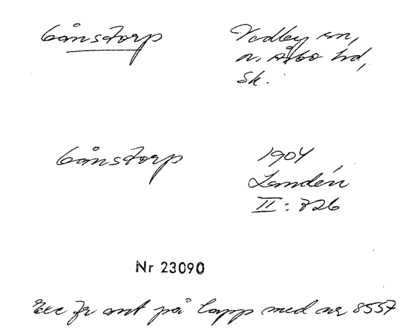 Gånstorp
Vedby sn,
n. Åsbo hd,
Sk.
Gånstorp
1904
Landén
II: 826
Nr 23090
Exc fr ant på lapp med nr 8557